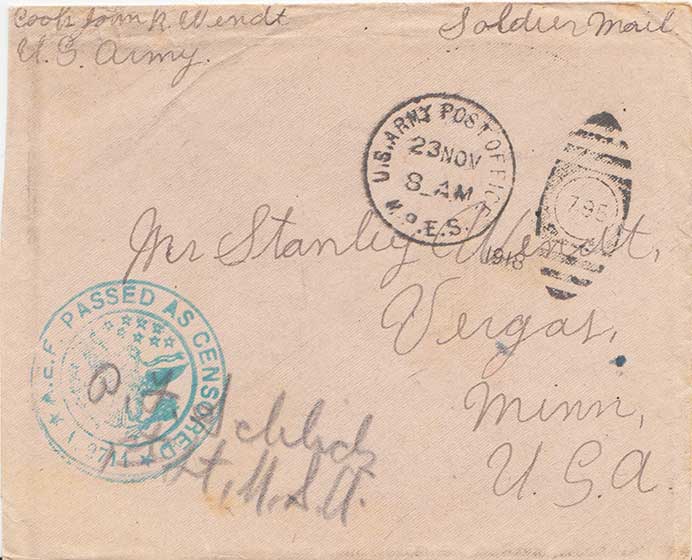 Cook John R. Wendt
U.S. Army.
Soldier Mail.
U.S. ARMY POST OFFICE
23 NOV
8 AM
M.P.E.S.
1918
795
Mr Stanley Wendt,
Vergas,
Minn,
U.S.A.
A.E.F. PASSED AS CENSORED